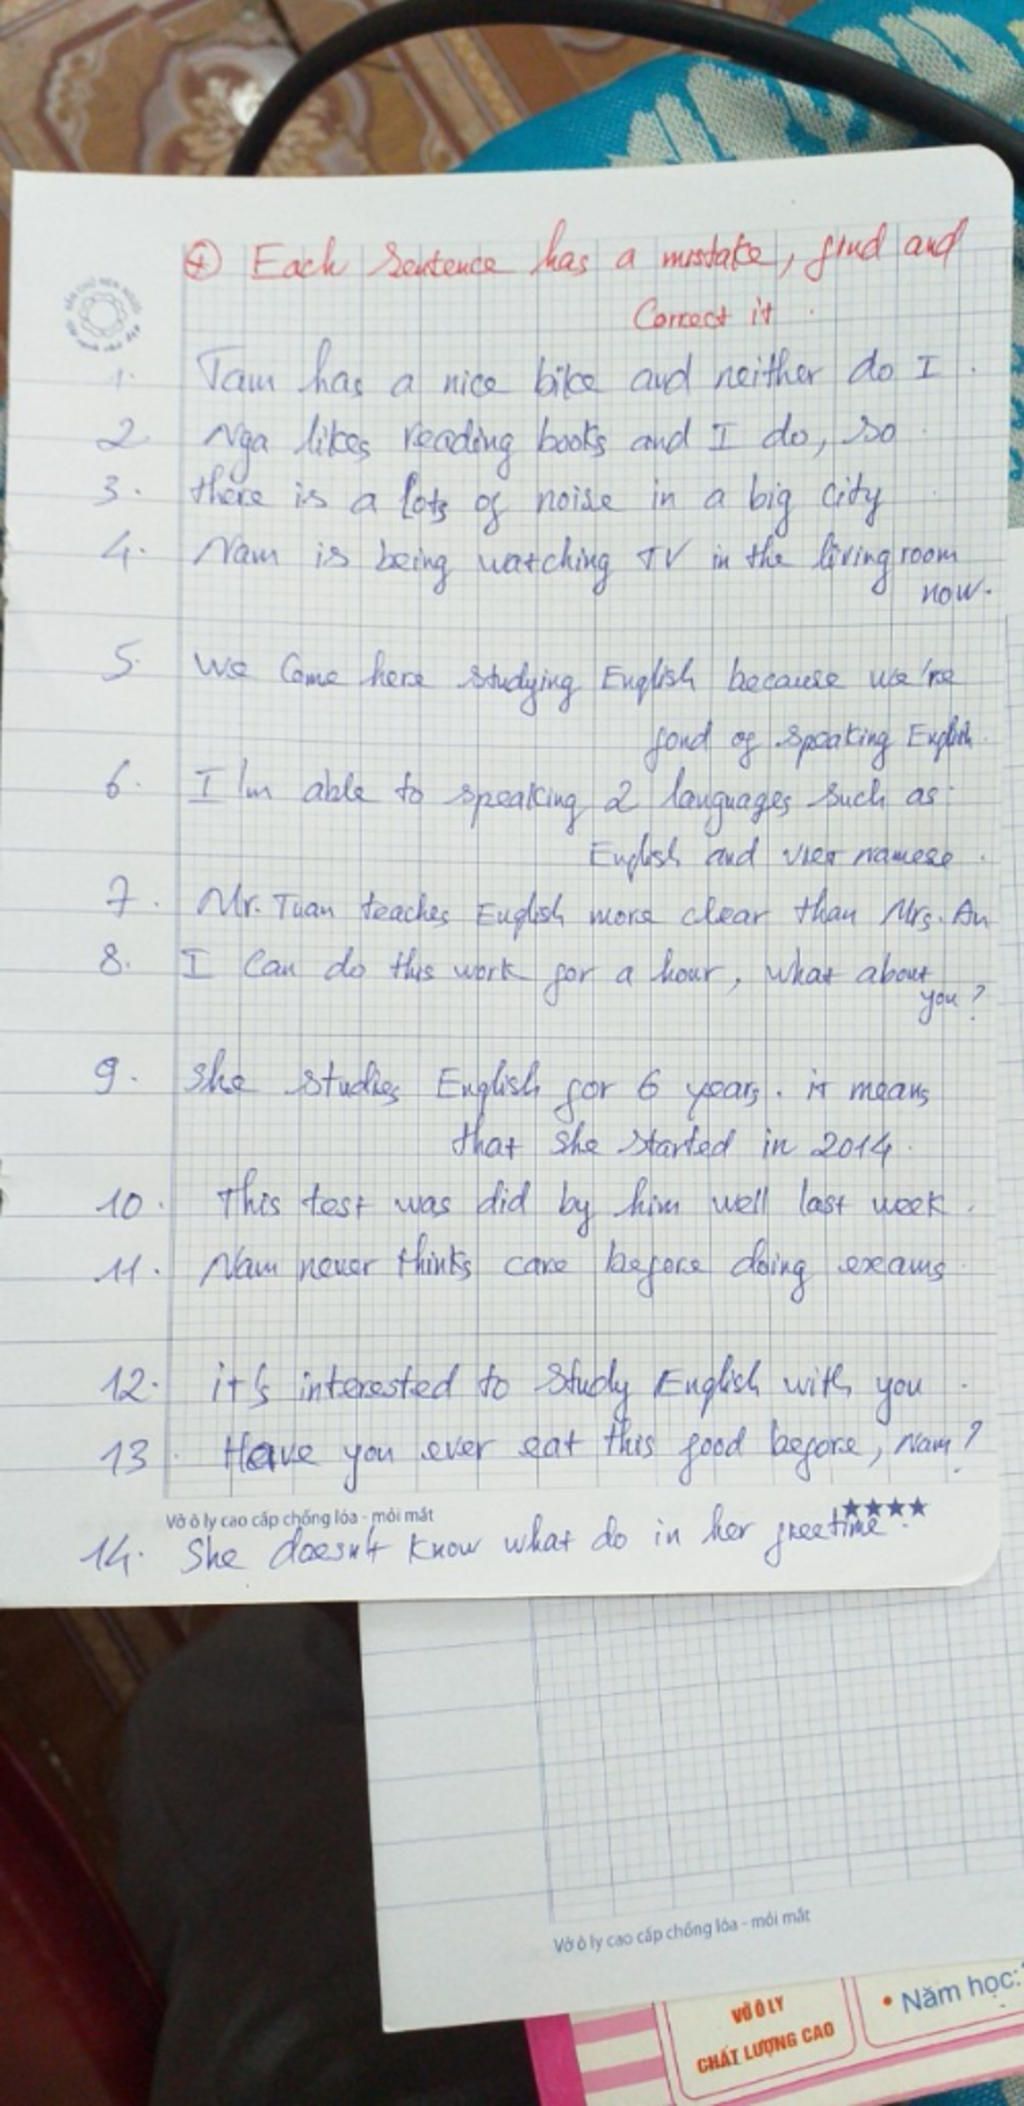 + Each sentence has a mistake, find and
Correct it.
1. Tam has a nice bike and neither do I.
2. Nga likes reading books and I do, so.
3. there is a lots of noise in a big city.
4. Nam is being watching TV in the living room
now.
5. We come here studying English because we're
fond of speaking English.
6. I'm able to speaking 2 languages such as:
English and Viet namese.
7. Mr. Tuan teaches English more clear than Mrs. An
8. I can do this work for a hour, what about
you?
9. She studies English for 6 years. it means
that she started in 2014.
10. This test was did by him well last week.
11. Nam never thinks care before doing exams
12. it's interested to study English with you.
13. Have you ever eat this food before, Nam?
Vở ô ly cao cấp chống lóa - mỏi mắt
14. She doesn't know what do in her freetime.
Vở ô ly cao cấp chống lóa - mỏi mắt
VỞ Ô LY
CHẤT LƯỢNG CAO
• Năm học: